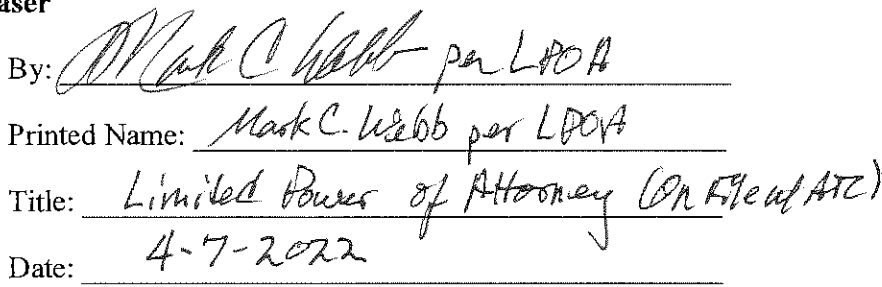 aser
By: Mark C Webb per LPOA
Printed Name: Mark C. Webb per LPOA
Title: Limited Power of Attorney (On File w/ ATC)
Date: 4-7-2022